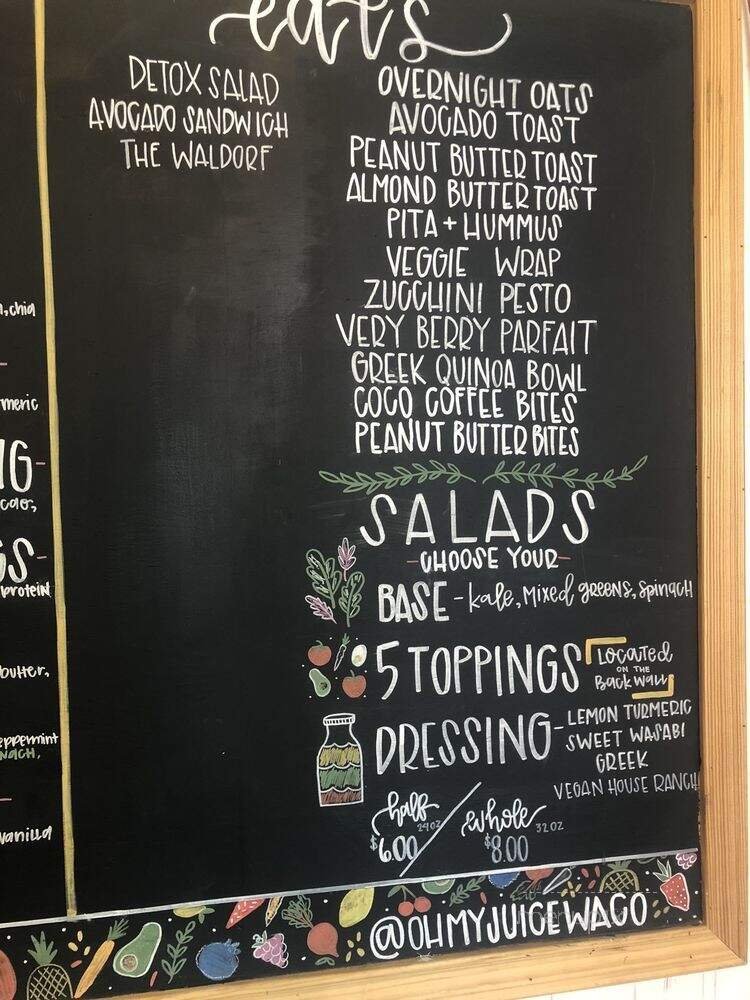 eats
DETOX SALAD
AVOCADO SANDWICH
THE WALDORF
OVERNIGHT OATS
AVOCADO TOAST
PEANUT BUTTER TOAST
ALMOND BUTTER TOAST
PITA + HUMMUS
VEGGIE WRAP
ZUCCHINI PESTO
VERY BERRY PARFAIT
GREEK QUINOA BOWL
COCO COFFEE BITES
PEANUT BUTTER BITES
SALADS
-CHOOSE YOUR-
BASE - kale, Mixed greens, Spinach
5 TOPPINGS
LOCATED
ON THE
Back Wall
DRESSING - LEMON TURMERIC
SWEET WASABI
GREEK
VEGAN HOUSE RANCH
half 24oz / whole 32oz
$6.00 $8.00
@OHMYJUICEWACO
, chia
protein
butter,
eppermint
vanilla